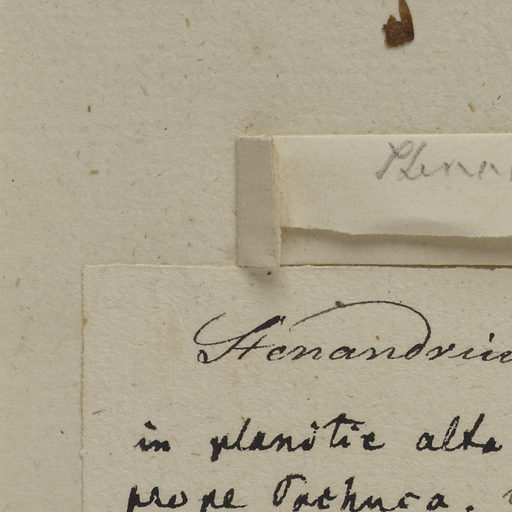 Stenan
Stenandriu
in planitie alta
prope Pachuca.